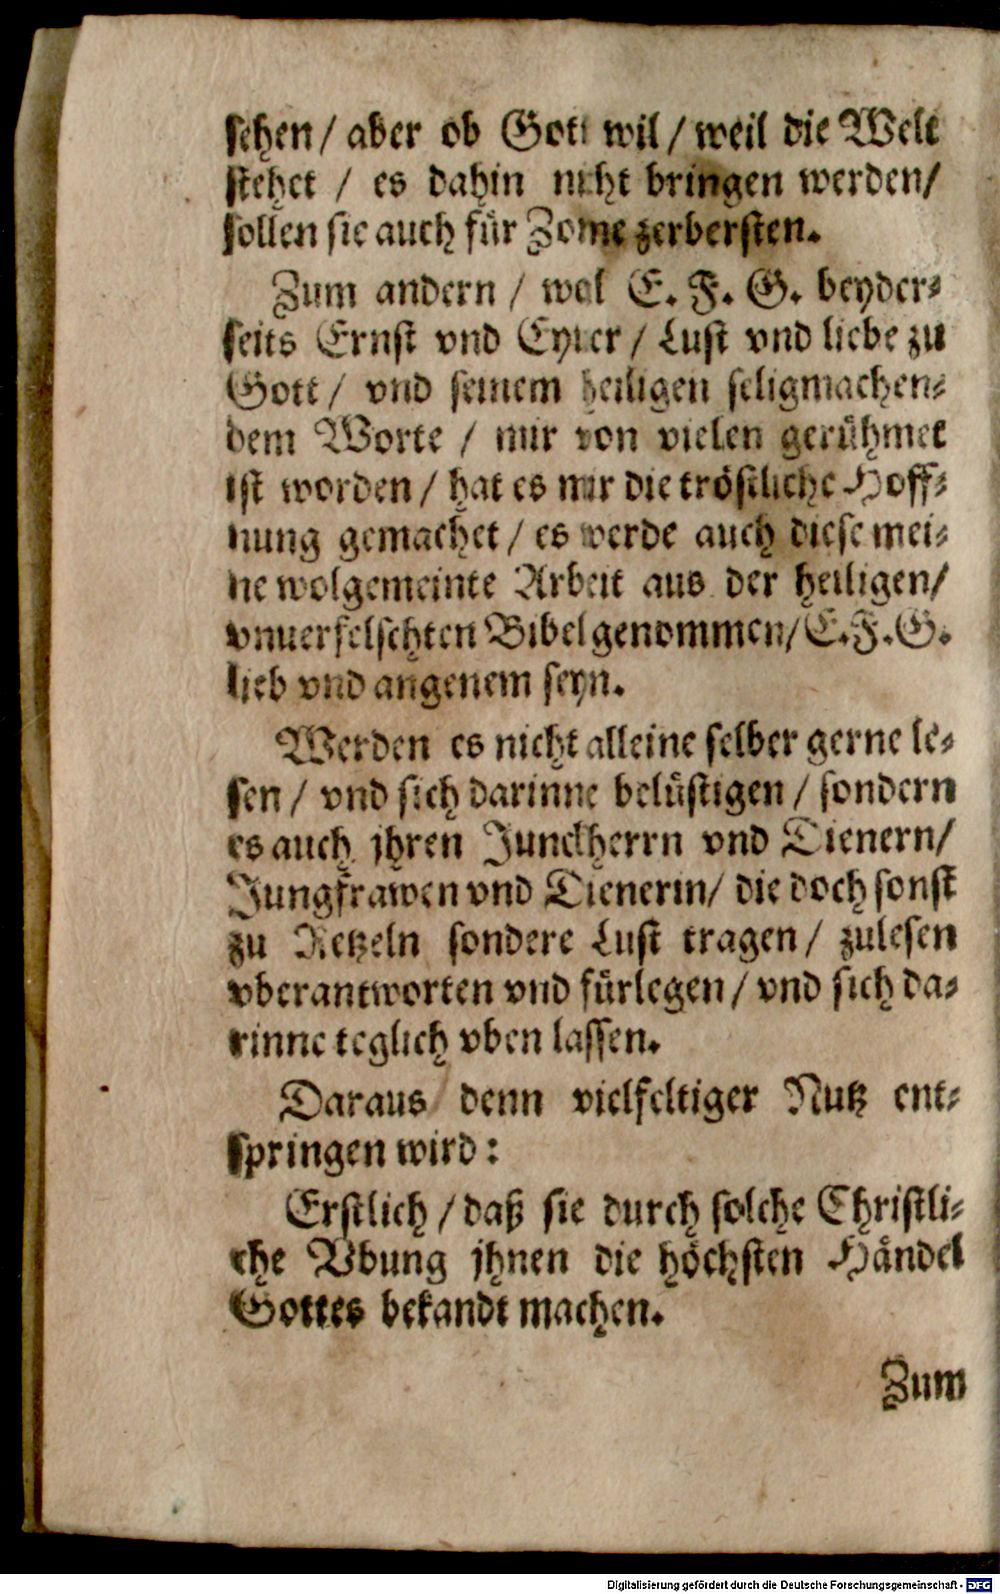 sehen / aber ob Gott wil / weil die Welt
stehet / es dahin nicht bringen werden /
sollen sie auch für Zorne zerbersten.
Zum andern / wol E. F. G. beyder-
seits Ernst vnd Eyuer / Lust vnd liebe zu
Gott / vnd seinem heiligen seligmachen-
dem Worte / mir von vielen gerühmet
ist worden / hat es mir die tröstliche Hoff-
nung gemachet / es werde auch diese mei-
ne wolgemeinte Arbeit aus der heiligen /
vnuerfelschten Bibel genommen / E. F. G.
lieb vnd angenem seyn.
Werden es nicht alleine selber gerne le-
sen / vnd sich darinne belüstigen / sondern
es auch jhren Junckherrn vnd Dienern /
Jungfrawen vnd Dienerin / die doch sonst
zu Retzeln sondere Lust tragen / zulesen
vberantworten vnd fürlegen / vnd sich da-
rinne teglich vben lassen.
Daraus denn vielfeltiger Nutz ent-
springen wird:
Erstlich / daß sie durch solche Christli-
che Vbung jhnen die höchsten Händel
Gottes bekandt machen.
Zum
Digitalisierung gefördert durch die Deutsche Forschungsgemeinschaft - DFG